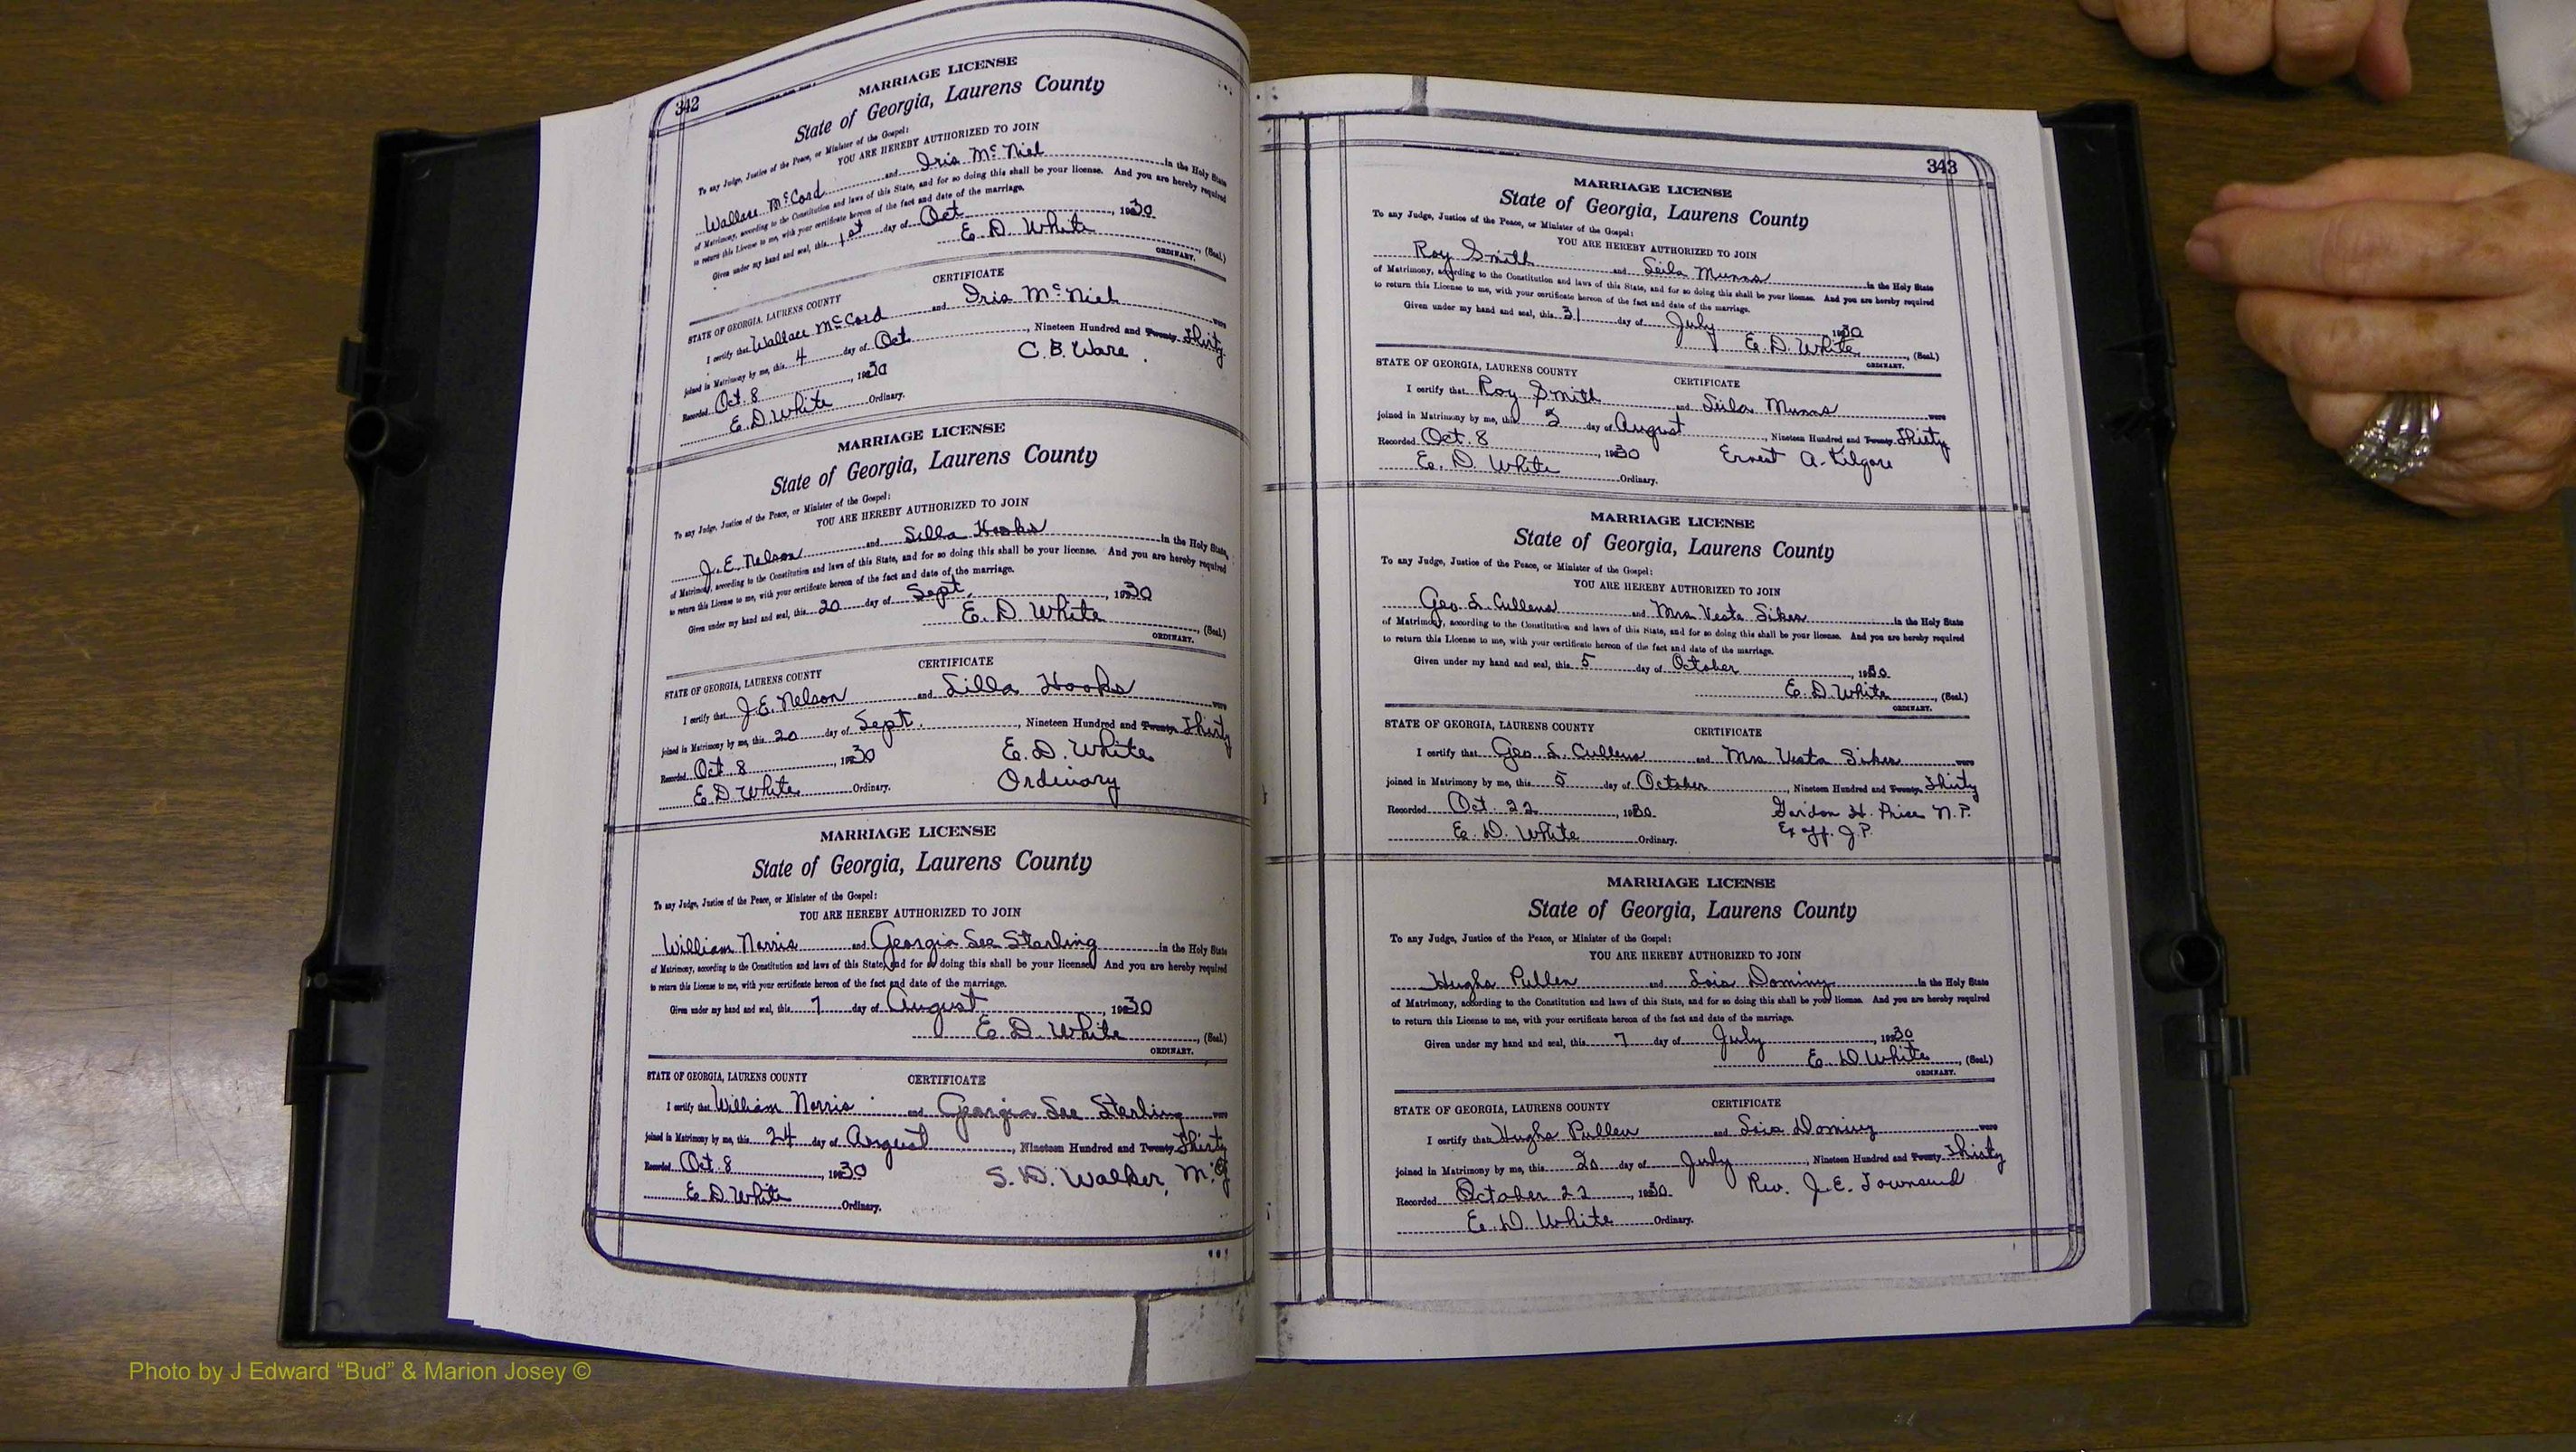 342
MARRIAGE LICENSE
State of Georgia, Laurens County
To any Judge, Justice of the Peace, or Minister of the Gospel:
YOU ARE HEREBY AUTHORIZED TO JOIN
Wallace McCord and Iris McNiel in the Holy State
of Matrimony, according to the Constitution and laws of this State, and for so doing this shall be your license. And you are hereby required
to return this License to me, with your certificate hereon of the fact and date of the marriage.
Given under my hand and seal, this 1st day of Oct, 1930
E. D. White, (Seal.)
ORDINARY.
STATE OF GEORGIA, LAURENS COUNTY CERTIFICATE
I certify that Wallace McCord and Iris McNiel were
joined in Matrimony by me, this 4 day of Oct, Nineteen Hundred and Twenty Thirty
Recorded Oct. 8, 1930 C. B. Ware.
E. D. White Ordinary.
MARRIAGE LICENSE
State of Georgia, Laurens County
To any Judge, Justice of the Peace, or Minister of the Gospel:
YOU ARE HEREBY AUTHORIZED TO JOIN
J. E. Nelson and Lilla Hooks in the Holy State
of Matrimony, according to the Constitution and laws of this State, and for so doing this shall be your license. And you are hereby required
to return this License to me, with your certificate hereon of the fact and date of the marriage.
Given under my hand and seal, this 20 day of Sept., 1930
E. D. White, (Seal.)
ORDINARY.
STATE OF GEORGIA, LAURENS COUNTY CERTIFICATE
I certify that J. E. Nelson and Lilla Hooks were
joined in Matrimony by me, this 20 day of Sept., Nineteen Hundred and Twenty Thirty
Recorded Oct 8, 1930 E. D. White
E D White Ordinary. Ordinary
MARRIAGE LICENSE
State of Georgia, Laurens County
To any Judge, Justice of the Peace, or Minister of the Gospel:
YOU ARE HEREBY AUTHORIZED TO JOIN
William Norris and Georgia Lee Sterling in the Holy State
of Matrimony, according to the Constitution and laws of this State, and for so doing this shall be your license. And you are hereby required
to return this License to me, with your certificate hereon of the fact and date of the marriage.
Given under my hand and seal, this 7 day of August, 1930
E. D. White, (Seal.)
ORDINARY.
STATE OF GEORGIA, LAURENS COUNTY CERTIFICATE
I certify that William Norris and Georgia Lee Sterling were
joined in Matrimony by me, this 24 day of August, Nineteen Hundred and Twenty Thirty
Recorded Oct. 8, 1930 S. D. Walker, M.G
E. D. White Ordinary.
343
MARRIAGE LICENSE
State of Georgia, Laurens County
To any Judge, Justice of the Peace, or Minister of the Gospel:
YOU ARE HEREBY AUTHORIZED TO JOIN
Roy Smith and Leila Munns in the Holy State
of Matrimony, according to the Constitution and laws of this State, and for so doing this shall be your license. And you are hereby required
to return this License to me, with your certificate hereon of the fact and date of the marriage.
Given under my hand and seal, this 31 day of July, 1930
E. D. White, (Seal.)
ORDINARY.
STATE OF GEORGIA, LAURENS COUNTY CERTIFICATE
I certify that Roy Smith and Leila Munns were
joined in Matrimony by me, this day of August, Nineteen Hundred and Twenty Thirty
Recorded Oct. 8, 1930 Ernest A. Kilgore
E. D. White Ordinary.
MARRIAGE LICENSE
State of Georgia, Laurens County
To any Judge, Justice of the Peace, or Minister of the Gospel:
YOU ARE HEREBY AUTHORIZED TO JOIN
Geo. L. Cullens and Mrs Vesta Sikes in the Holy State
of Matrimony, according to the Constitution and laws of this State, and for so doing this shall be your license. And you are hereby required
to return this License to me, with your certificate hereon of the fact and date of the marriage.
Given under my hand and seal, this 5 day of October, 1930
E. D. White, (Seal.)
ORDINARY.
STATE OF GEORGIA, LAURENS COUNTY CERTIFICATE
I certify that Geo. L. Cullens and Mrs Vesta Sikes were
joined in Matrimony by me, this 5 day of October, Nineteen Hundred and Twenty Thirty
Recorded Oct. 22, 1930 Gordon H. Price N. P.
E. D. White Ordinary. Ex off. J. P.
MARRIAGE LICENSE
State of Georgia, Laurens County
To any Judge, Justice of the Peace, or Minister of the Gospel:
YOU ARE HEREBY AUTHORIZED TO JOIN
Hughs Pullen and Lois Dominy in the Holy State
of Matrimony, according to the Constitution and laws of this State, and for so doing this shall be your license. And you are hereby required
to return this License to me, with your certificate hereon of the fact and date of the marriage.
Given under my hand and seal, this 7 day of July, 1930
E. D. White, (Seal.)
ORDINARY.
STATE OF GEORGIA, LAURENS COUNTY CERTIFICATE
I certify that Hughs Pullen and Lois Dominy were
joined in Matrimony by me, this 20 day of July, Nineteen Hundred and Twenty Thirty
Recorded October 22, 1930 Rev. J. E. Townsend
E. D. White Ordinary.
Photo by J Edward “Bud” & Marion Josey ©